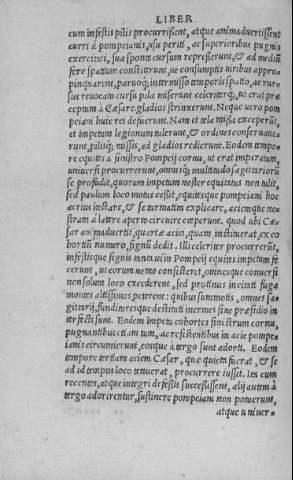 LIBER
cum infestis pilis procurrissent, atque animaduertissent
curri à pompeianis, usu periti, ac superioribus pugnis
exercitati, sua sponte cursum represserunt, & ad medium
fere spatium constiterunt, ne consumptis uiribus appro
pinquarent, paruoq; intermisso temporis spatio, ac rur
sus reuocato cursu pila miserunt celeriterq;, ut erat præ
ceptum à Cæsare gladios strinxerunt. Neque uero pom
peiani huic rei defuerunt. Nam et tela missa exceperunt,
et impetum legionum tulerunt, & ordines conseruaue
runt, pilisq; missis, ad gladios redierunt. Eodem tempo
re equites à sinistro Pompeij cornu, ut erat imperatum,
uniuersi procurrerunt, omnisq; multitudo sagittariorũ
se profudit, quorum impetum noster equitatus non tulit,
sed paulum loco motus cessit, equitesque pompeiani hoc
acrius instare, & se turmatim explicare, aciemque no
stram à latere aperto circuire cœperunt. quod ubi Cæ
sar animaduertit, quartæ aciei, quam instituerat, ex co
hortiũ numero, signũ dedit. Illi celeriter procurrerũt,
infestisque signis tanta ui in Pompeij equites impetum fe
cerunt, ut eorum nemo consisteret, omnesque conuersi
non solum loco excederent, sed protinus incitati fuga
montes altissimos, peterent: quibus summotis, omnes sa
gittarij, funditoresque destituti inermes sine præsidio in
terfecti sunt. Eodem impetu cohortes sinistrum cornu,
pugnantibus etiam tum, ac resistentibus in acie pompe
ianis circumierunt, eosque à tergo sunt adorti. Eodem
tempore tertiam aciem Cæsar, quæ quieta fuerat, & se
ad id tempus loco tenuerat, procurrere iussit. Ita cum
recentes, atque integri defessis successissent, alij autem à
tergo adorirentur, sustinere pompeiani non potuerunt,
atque uniuer-